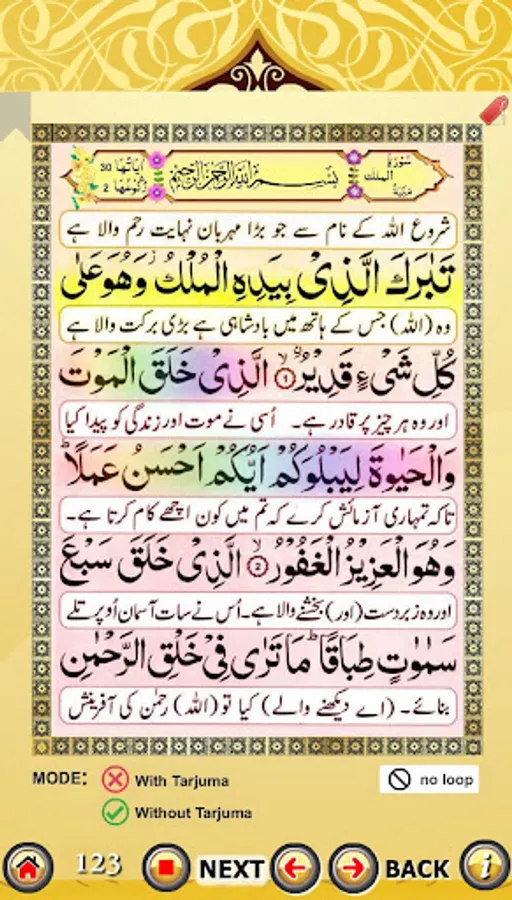 سُوْرَةُ الملك مَكِّيَّة
بِسْمِ اللّٰهِ الرَّحْمٰنِ الرَّحِيْمِ
اٰيَاتُهَا 30
رُكُوْعُهَا 2
شروع اللہ کے نام سے جو بڑا مہربان نہایت رحم والا ہے
تَبٰرَكَ الَّذِیْ بِیَدِهِ الْمُلْكُ٘ وَهُوَ عَلٰى
وہ (اللہ) جس کے ہاتھ میں بادشاہی ہے بڑی برکت والا ہے
كُلِّ شَیْءٍ قَدِیْرُ ۙ﴿1﴾ الَّذِیْ خَلَقَ الْمَوْتَ
اور وہ ہر چیز پر قادر ہے۔ اُسی نے موت اور زندگی کو پیدا کیا
وَالْحَیٰوةَ لِیَبْلُوَكُمْ اَیُّكُمْ اَحْسَنُ عَمَلًا ؕ
تاکہ تمہاری آزمائش کرے کہ تم میں کون اچھے کام کرتا ہے۔
وَهُوَ الْعَزِیْزُ الْغَفُوْرُ ۙ﴿2﴾ الَّذِیْ خَلَقَ سَبْعَ
اور وہ زبردست (اور) بخشنے والا ہے۔ اُس نے سات آسمان اُوپر تلے
سَمٰوٰتٍ طِبَاقًا ؕ مَا تَرٰى فِیْ خَلْقِ الرَّحْمٰنِ
بنائے۔ (اے دیکھنے والے) کیا تو (اللہ) رحمٰن کی آفرینش
MODE: With Tarjuma
no loop
Without Tarjuma
123 NEXT BACK i